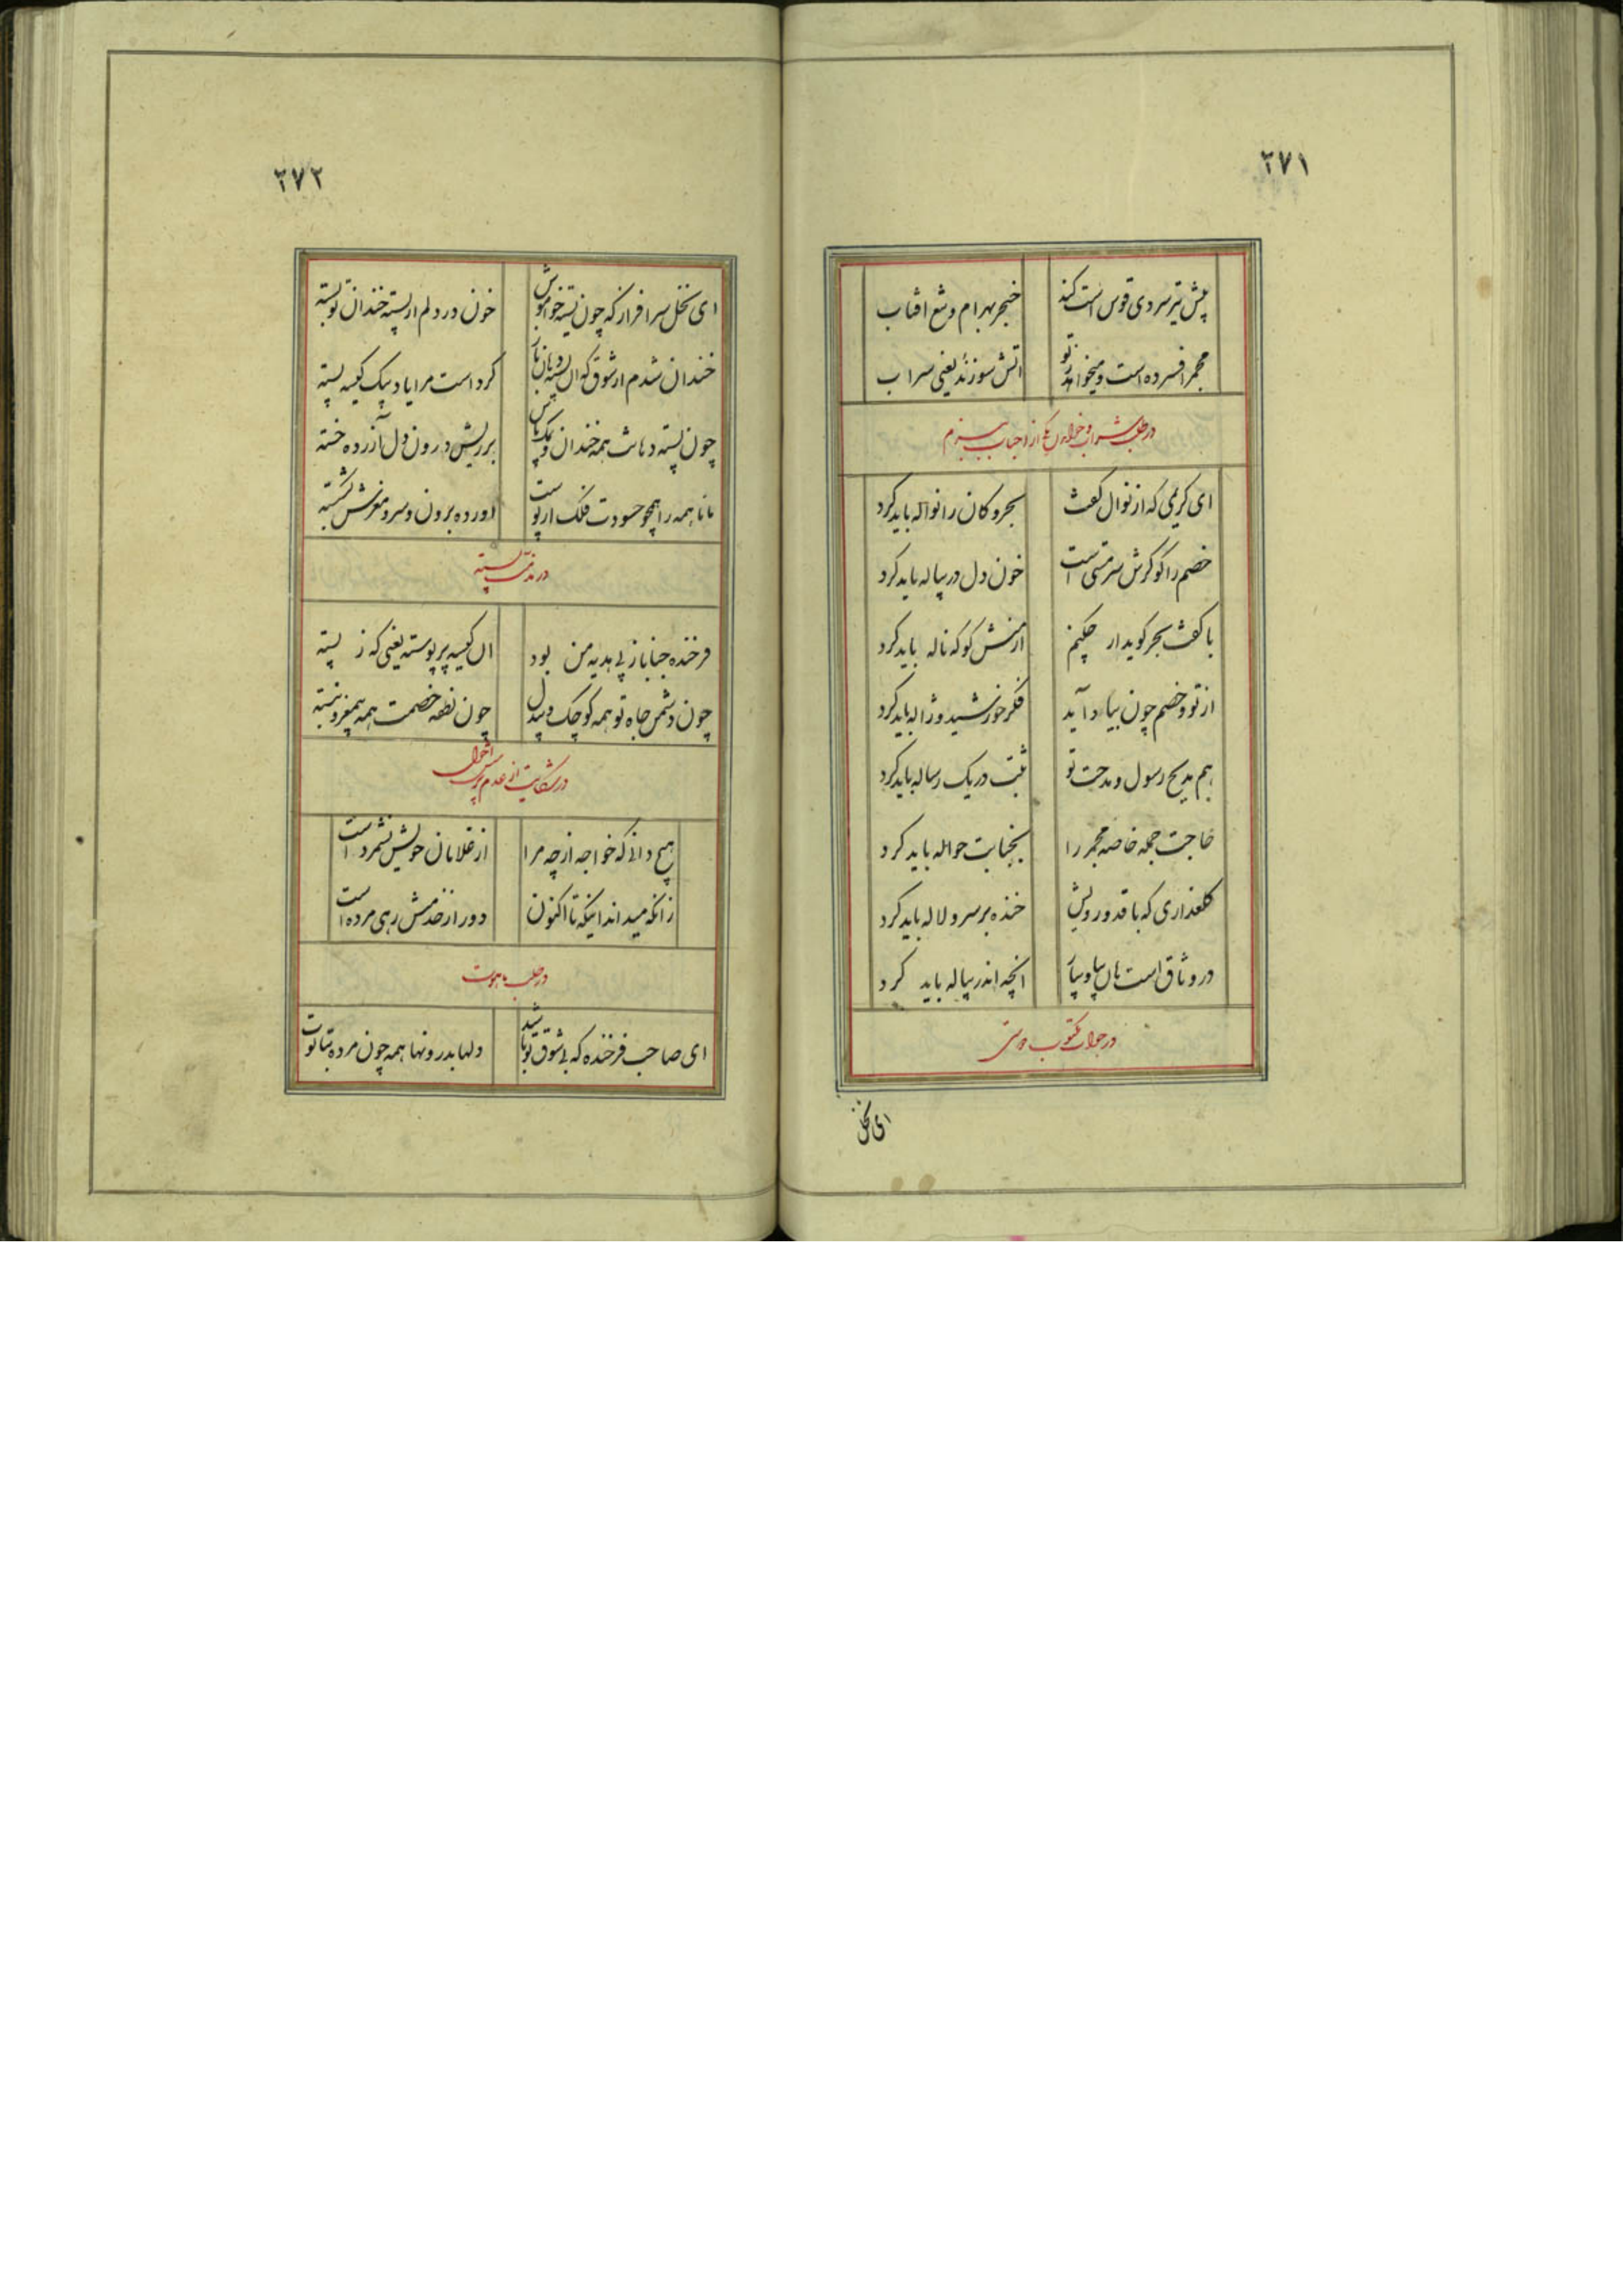 ۲۷۱
پیش تیر سرد دی قوس است کند خنجر بهرام و تیغ افتاب
مجمر افسرده است و میخواهد ز تو اتش سوزنده یعنی شراب
در طلب شراب و خواندن یکی از احباب ببزم
ای کریمی که از نوال کفت بحر و کان را نواله باید کرد
خصم را کو کرش سر مستی است خون دل در پیاله باید کرد
با کفت بحر کوید ار چکنم ار منش کو که ناله باید کرد
از تو و خصم چون بیاد آید فکر خورشید و ژاله باید کرد
هم مدیح رسول و مدحت تو ثبت در یک رساله باید کرد
حاجت جمله خاصه مجمر را بجنابت حواله باید کرد
کلعذاری که با قد و رویش خنده بر سرو لاله باید کرد
در وثاق است هان بیا و بیآر انچه اندر پیاله باید کرد
در جواب مکتوب دوستی
ای نخل
۲۷۲
ای نخل سرافراز که چون پسته خواموش خون در دلم از پسته خندان تو بسته
خندان شدم از شوق که ان پسته دهان باز کرد است مرا یاد بیک کیسه پسته
چون پسته دهانت همه خندان و یکایک بر ریش درون دل آزرده خسته
مانا همه را همچو حسودت فلک از پوست اورده برون و سر و مغزش شکسته
در مذمت پسته
فرخنده جنابا ز پی هدیه من بود ان کیسه پر پوسته یعنی که ز پسته
چون دشمن جاه تو همه کوچک و بیدل چون نطفه خصمت همه بیمغز و نبسته
در شکایت از عدم پرسش احوال
هیچ دانی که خواجه از چه مرا از غلامان خویش نشمرد است
زانکه میداند اینکه تا اکنون دور از خدمتش رهی مرده است
در طلب ماهوت
ای صاحب فرخنده که بی شوق تو باشد دلها بدرونها همه چون مرده بتابوت